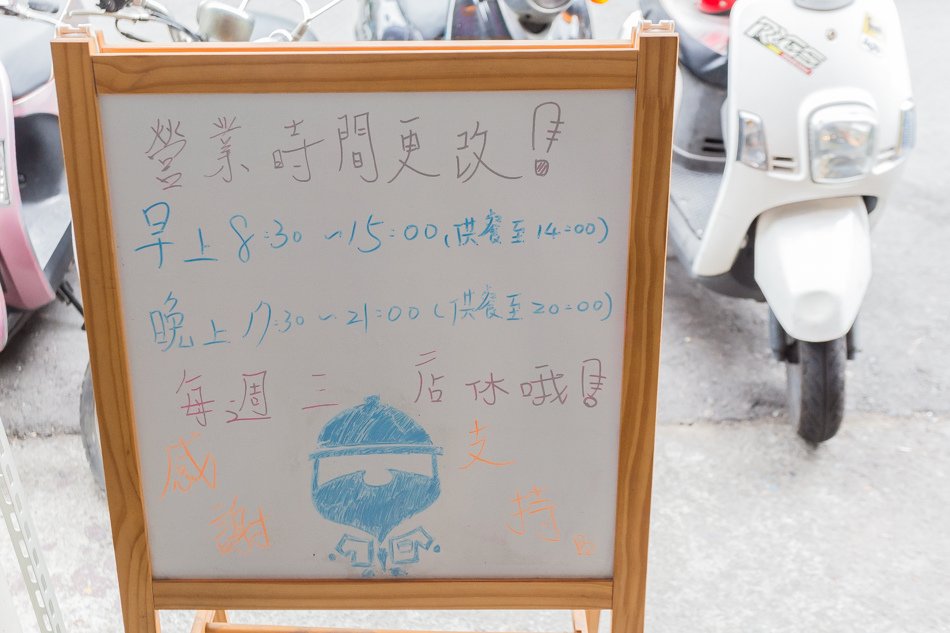 營業時間更改!
早上 8:30 ~ 15:00 (供餐至 14:00)
晚上 17:30 ~ 21:00 (供餐至 20:00)
每週三 店休哦!
感謝 支持
RGS